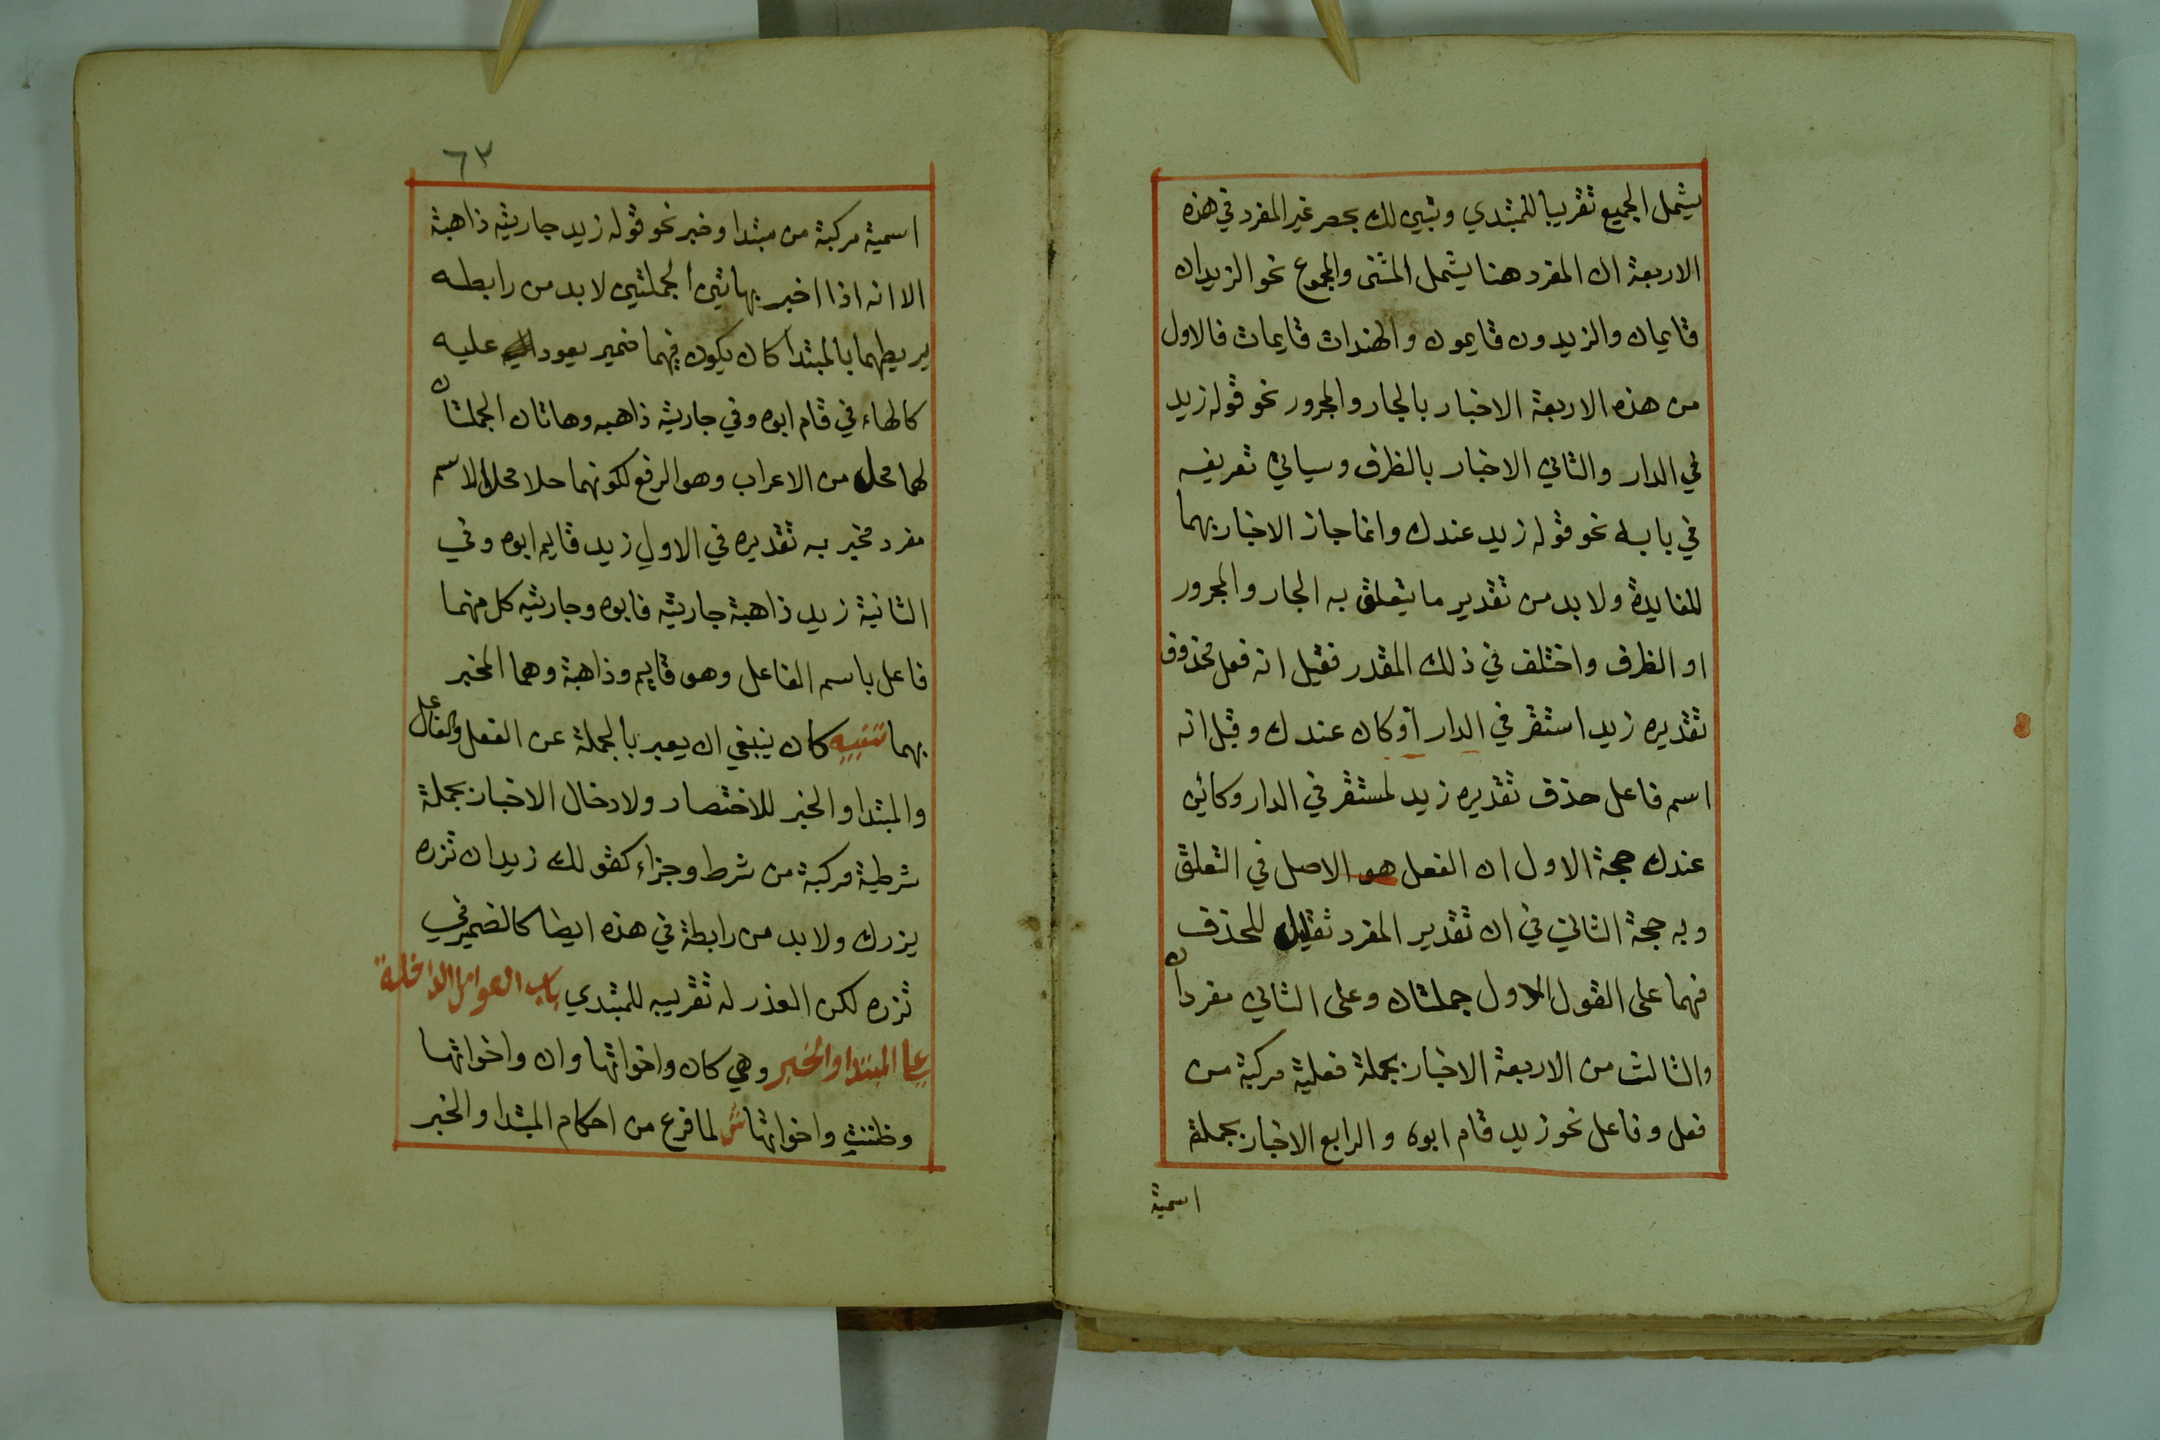 يشمل الجميع تقريبا للمبتدي وتبين لك بحصر غير المفرد في هذه
الاربعة ان المفرد هنا يشمل المثنى والمجموع نحو الزيدان
قايمان والزيدون قايمون والهندات قايمات فالاول
من هذه الاربعة الاخبار بالجار والمجرور نحو قوله زيد
في الدار والثاني الاخبار بالظرف وسياتي تعريفه
في بابه نحو قوله زيد عندك وانما جاز الاخبار بهما
للفايدة ولا بد من تقدير ما يتعلق به الجار والمجرور
او الظرف واختلف في ذلك المقدر فقيل انه فعل محذوف
تقديره زيد استقر في الدار او كان عندك وقيل انه
اسم فاعل حذف تقديره زيد لمستقر في الدار وكائن
عندك حجة الاول ان الفعل هو الاصل في التعلق
وبه حجة الثاني في ان تقدير المفرد تقليل للحذف
فهما على القول الاول جملتان وعلى الثاني مفردان
والثالث من الاربعة الاخبار بجملة فعلية مركبة من
فعل وفاعل نحو زيد قام ابوه والرابع الاخبار بجملة
اسمية
٦٣
اسمية مركبة من مبتدا وخبر نحو قوله زيد جاريته ذاهبة
الا انه اذا اخبر بهاتين الجملتين لا بد من رابطه
يربطهما بالمبتدا كان يكون فيهما ضمير يعود عليه
كالهاء في قام ابوه وفي جاريته ذاهبه وهاتان الجملتان
لهما محل من الاعراب وهو الرفع لكونهما حلا محل الاسم
مفرد مخبر به تقديره في الاول زيد قايم ابوه وفي
الثانية زيد ذاهبة جاريته فابوه وجاريته كل منهما
فاعل باسم الفاعل وهو قايم وذاهبة وهما المخبر
بهما تنبيه كان ينبغي ان يعبر بالجملة عن الفعل والفاعل
والمبتدا والخبر للاختصار ولادخال الاخبار بجملة
شرطية مركبة من شرط وجزاء كقولك زيد ان تزره
يزرك ولا بد من رابطة في هذه ايضا كالضمير في
تزره لكن العذر له تقريبه للمبتدي باب العوامل الداخلة
على المبتدا والخبر وهي كان واخواتها وان واخواتها
وظننت واخواتها ش لما فرغ من احكام المبتدا والخبر